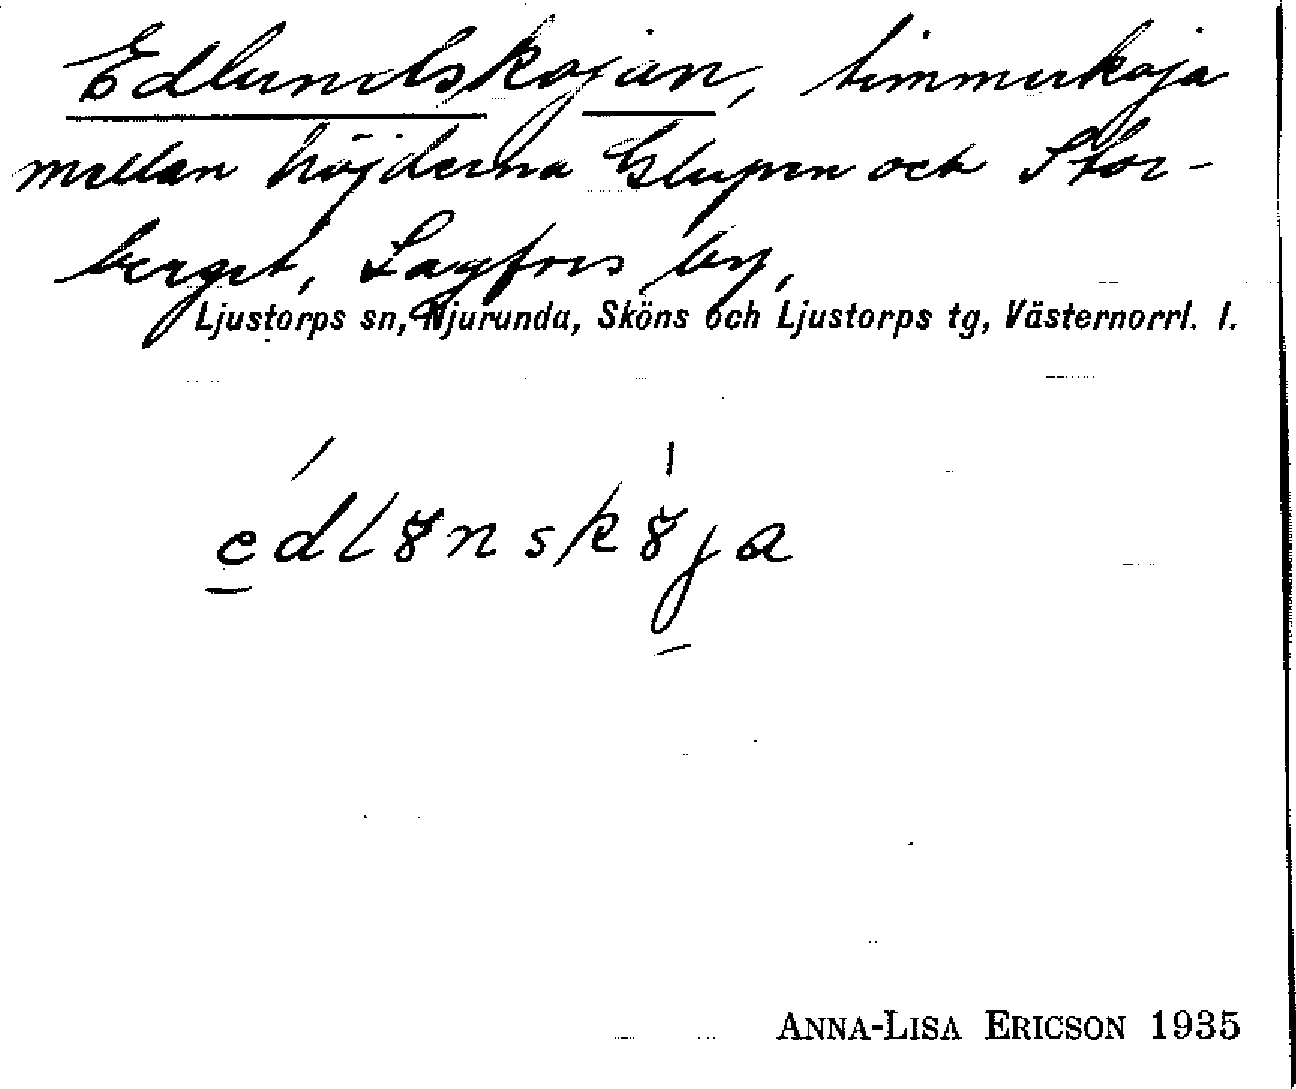 Edlundskojan, timmerkoja
mellan höjderna Glupen och Stor-
berget, Lagfors by,
Ljustorps sn, Njurunda, Sköns och Ljustorps tg, Västernorrl. l.
edlȣnskȣja
ANNA-LISA ERICSON 1935